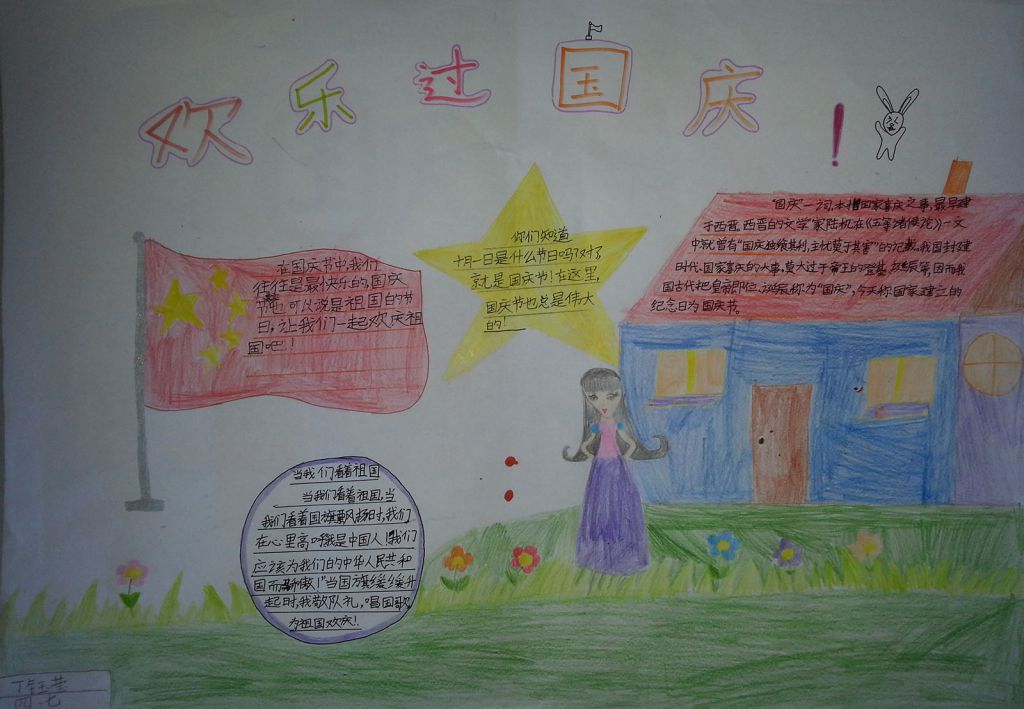 欢乐过国庆!
在国庆节中,我们
往往是最快乐的,国庆
节也可以说是祖国的节
日,让我们一起欢庆祖
国吧!
你们知道
十月一日是什么节日吗?对了
就是国庆节!在这里,
国庆节也总是伟大
的!
"国庆"一词,本指国家喜庆之事,最早见
于西晋。西晋的文学家陆机在《五等诸侯论》一文
中就曾有"国庆独飨其利,主忧莫与其害"的记载。我国封建
时代、国家喜庆的大事,莫大过于帝王的登基、诞辰等。因而我
国古代把皇帝即位、诞辰称为"国庆",今天称国家建立的
纪念日为国庆节。
当我们看着祖国
当我们看着祖国,当
我们看着国旗飘扬时,我们
在心里高呼我是中国人!我们
应该为我们的中华人民共和
国而骄傲!"当国旗缓缓升
起时,我敬队礼,唱国歌,
为祖国欢庆!
四·七